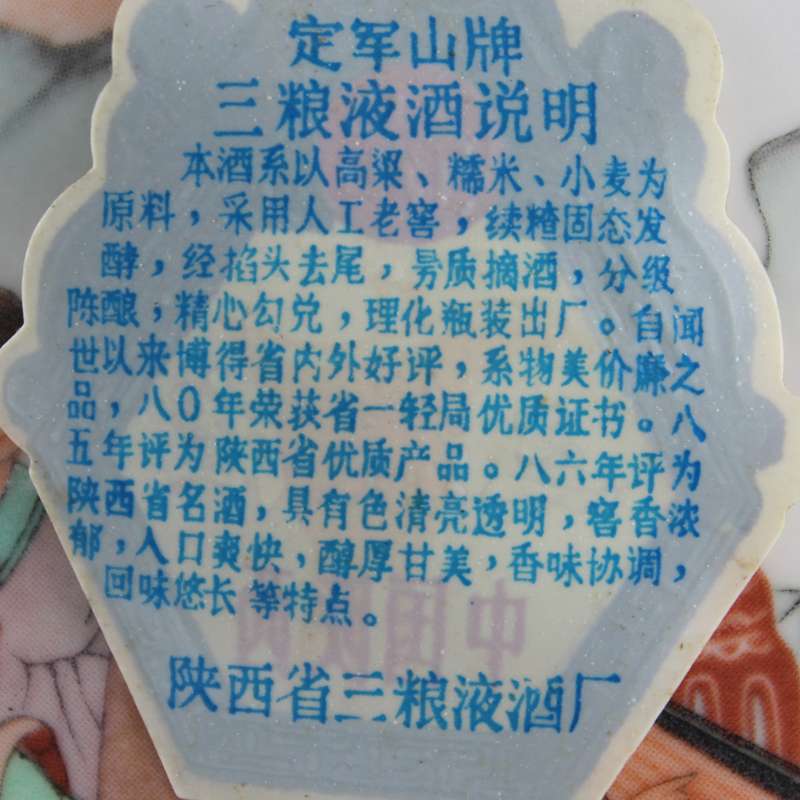 定军山牌
三粮液酒说明
本酒系以高粱、糯米、小麦为
原料，采用人工老窖，续糟固态发
酵，经掐头去尾，另质摘酒，分级
陈酿，精心勾兑，理化瓶装出厂。自闻
世以来博得省内外好评，系物美价廉之
品，八0年荣获省一轻局优质证书。八
五年评为陕西省优质产品。八六年评为
陕西省名酒，具有色清亮透明，窖香浓
郁，入口爽快，醇厚甘美，香味协调，
回味悠长 等特点。
中国
陕西省三粮液酒厂